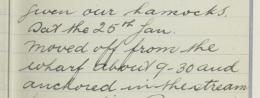 given our hamocks.
Sat the 25th Jan.
Moved off from the
wharf about 9-30 and
anchored in the stream